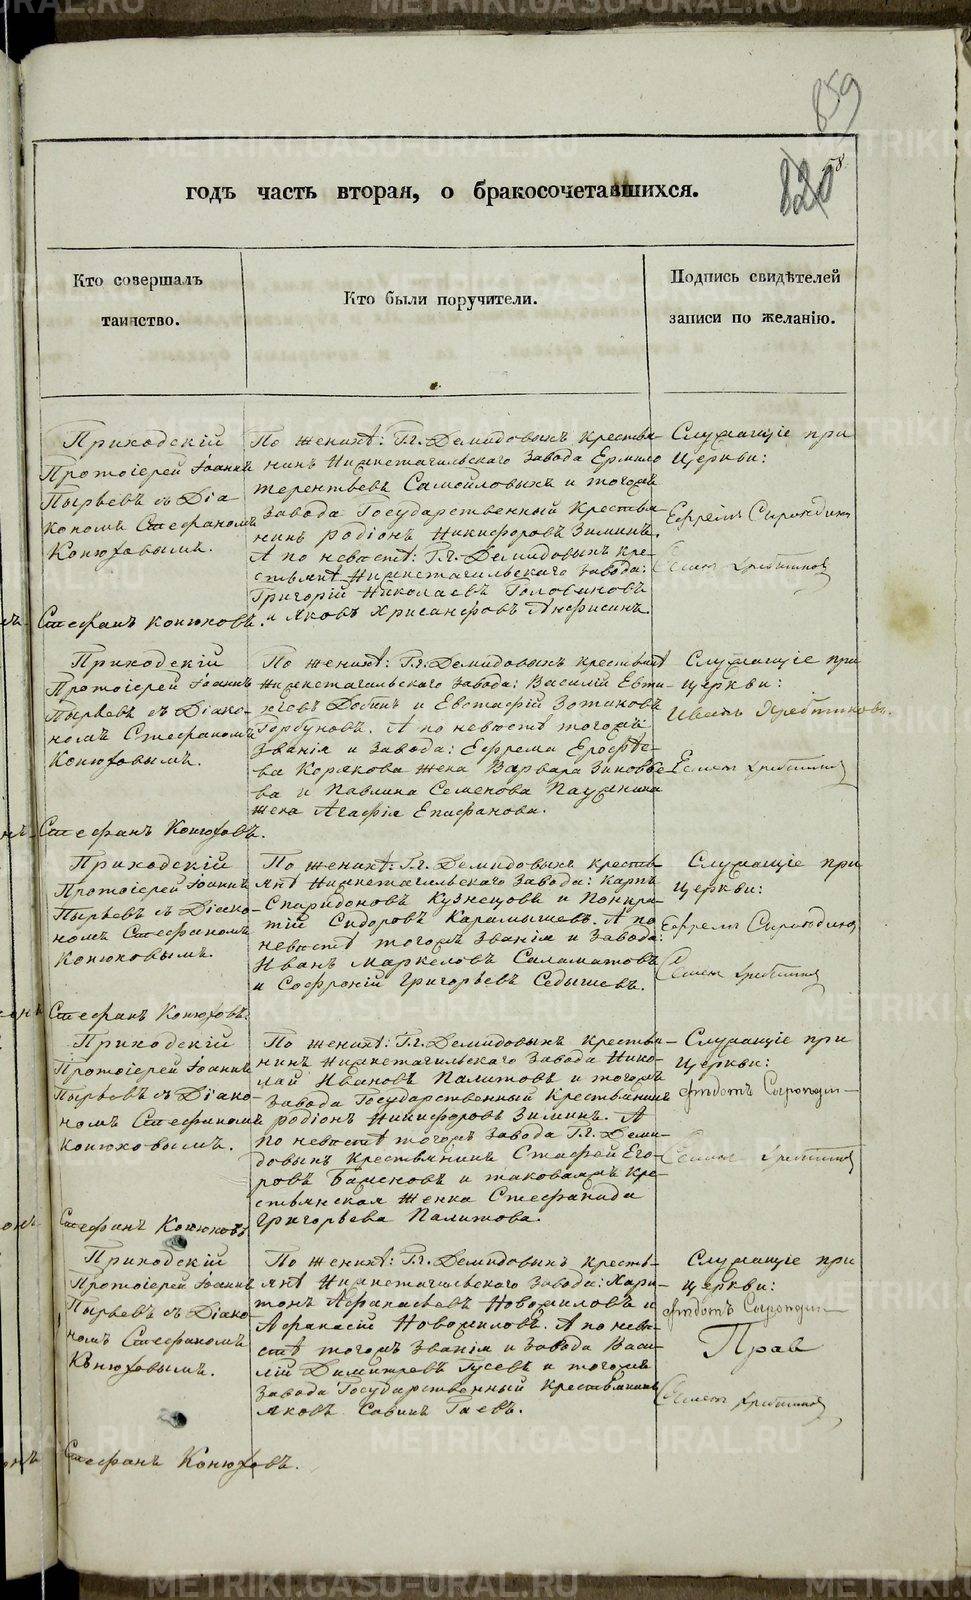 859
820
58.
годъ часть вторая, о бракосочетавшихся.
Кто совершалъ
таинство.
Кто были поручители.
Подпись свидѣтелей
записи по желанію.
Приходскій
Протоіерей Іоаннъ
Пырьевъ съ Діа-
кономъ Стефаномъ
Конюховымъ.
Стефанъ Конюховъ.
По женихѣ: Г.г. Демидовыхъ крестья-
нинъ Нижнетагильскаго завода Ермило
Терентьевъ Самойловыхъ и тогожъ
завода Государственный Крестья-
нинъ Родіонъ Никифоровъ Зиминъ.
А по невѣстѣ: Г.г. Демидовыхъ кре-
стьянѣ Нижнетагильскаго завода:
Григорій Николаевъ Головиновъ
и Яковъ Хрисанфовъ Анфисинъ.
Служащіе при
Церкви:
Ефремъ Сыропдинъ
Семенъ Хребтиковъ
Приходскій
Протоіерей Іоаннъ
Пырьевъ съ Діако-
номъ Стефаномъ
Конюховымъ.
Стефанъ Конюховъ.
По женихѣ: Г.г. Демидовыхъ крестьянѣ
Нижнетагильскаго завода: Василій Евти-
хіевъ Добинъ и Евстафій Зотиковъ
Горбуновъ. А по невѣстѣ тогожъ
званія и завода: Ефрема Ерофѣе-
ва Корякова жена Варвара Зиновье-
ва и Павлина Семенова Паужнина
жена Агафія Епифанова.
Служащіе при
церкви:
Иванъ Хребтиковъ.
Семенъ Хребтиковъ
Приходскій
Протоіерей Іоаннъ
Пырьевъ съ Діако-
номъ Стефаномъ
Конюховымъ.
Стефанъ Конюховъ.
По женихѣ: Г.г. Демидовыхъ крестья-
янѣ Нижнетагильскаго завода: Карпъ
Спиридоновъ Кузнецовъ и Понкра-
тій Сидоровъ Карамышевъ. А по
невѣстѣ тогожъ званія и завода:
Иванъ Маркеловъ Саламатовъ
и Софроній Григорьевъ Седышевъ.
Служащіе при
церкви:
Ефремъ Сыропдинъ
Семенъ Хребтиковъ
Приходскій
Протоіерей Іоаннъ
Пырьевъ съ Діако-
номъ Стефаномъ
Конюховымъ.
Стефанъ Конюховъ
По женихѣ: Г.г. Демидовыхъ крестья-
нинъ Нижнетагильскаго завода Нико-
лай Ивановъ Палитовъ и тогожъ
завода Государственный Крестьянинъ
Родіонъ Никифоровъ Зиминъ. А
по невѣстѣ тогожъ завода Г.г. Деми-
довыхъ Крестьянинъ Стафей Его-
ровъ Баженовъ и таковаяжъ кре-
стьянская женка Стефанида
Григорьева Палитова.
Служащіе при
церкви:
Семенъ Хребтиковъ
Приходскій
Протоіерей Іоаннъ
Пырьевъ съ Діако-
номъ Стефаномъ
Конюховымъ.
Стефанъ Конюховъ.
По женихѣ: Г.г. Демидовыхъ кресть-
янѣ Нижнетагильскаго завода: Хари-
тонъ Афанасьевъ Новожиловъ и
Афанасій Новожиловъ. А по невѣ-
стѣ тогожъ званія и завода Васи-
лій Димитревъ Гусевъ и тогожъ
завода Государственный Крестьянинъ
Яковъ Савинъ Гаевъ.
Служащіе при
церкви:
Прав
Семенъ Хребтиковъ
METRIKI.GASO-URAL.RU